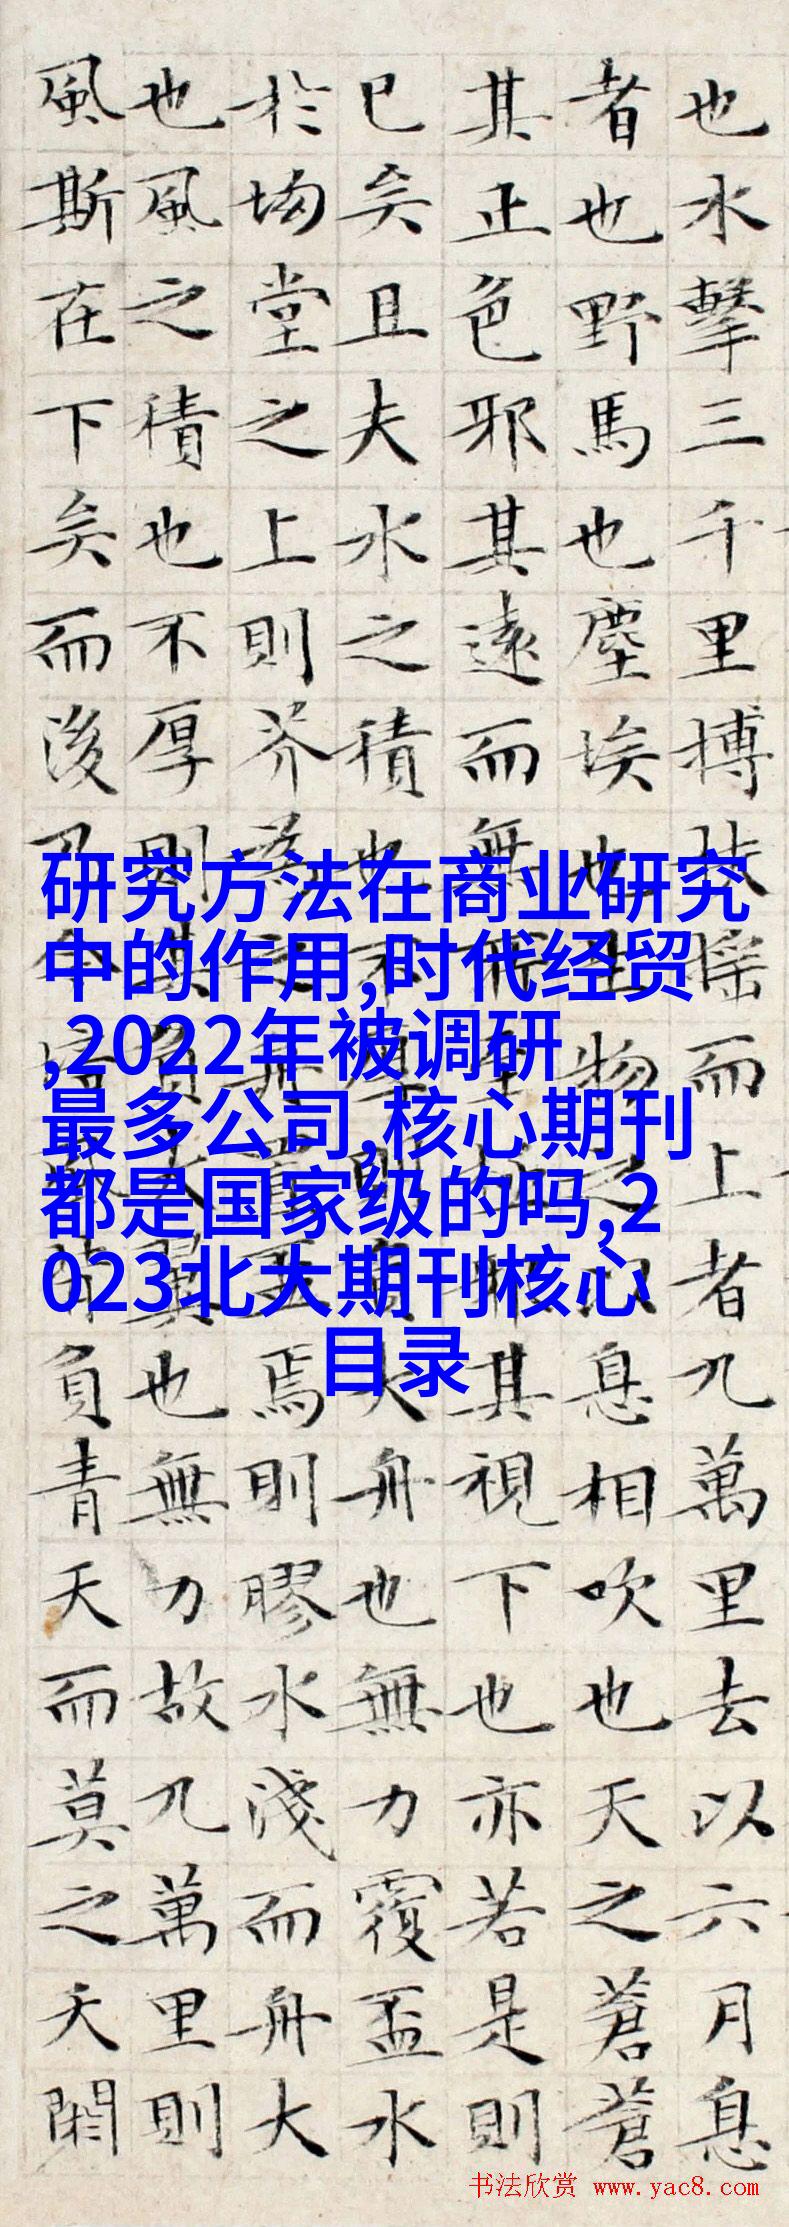 也水擊三千里搏扶摇而上者九萬里去以六月息
者也野馬也塵埃也生物之以息相吹也天之蒼蒼
其正色邪其遠而無所至極邪其視下也亦若是則
已矣且夫水之積也不厚則負大舟也無力覆盃水
於坳堂之上則芥為之舟置盃焉則膠水淺而舟大
也風之積也不厚則其負大翼也無力故九萬里則
風斯在下矣而後乃今培風背負青天而莫之夭閼
研究方法在商业研究
中的作用,时代经贸
,2022年被调研
最多公司,核心期刊
都是国家级的吗,2
023北大期刊核心
目录
书法欣赏 www.yac8.com